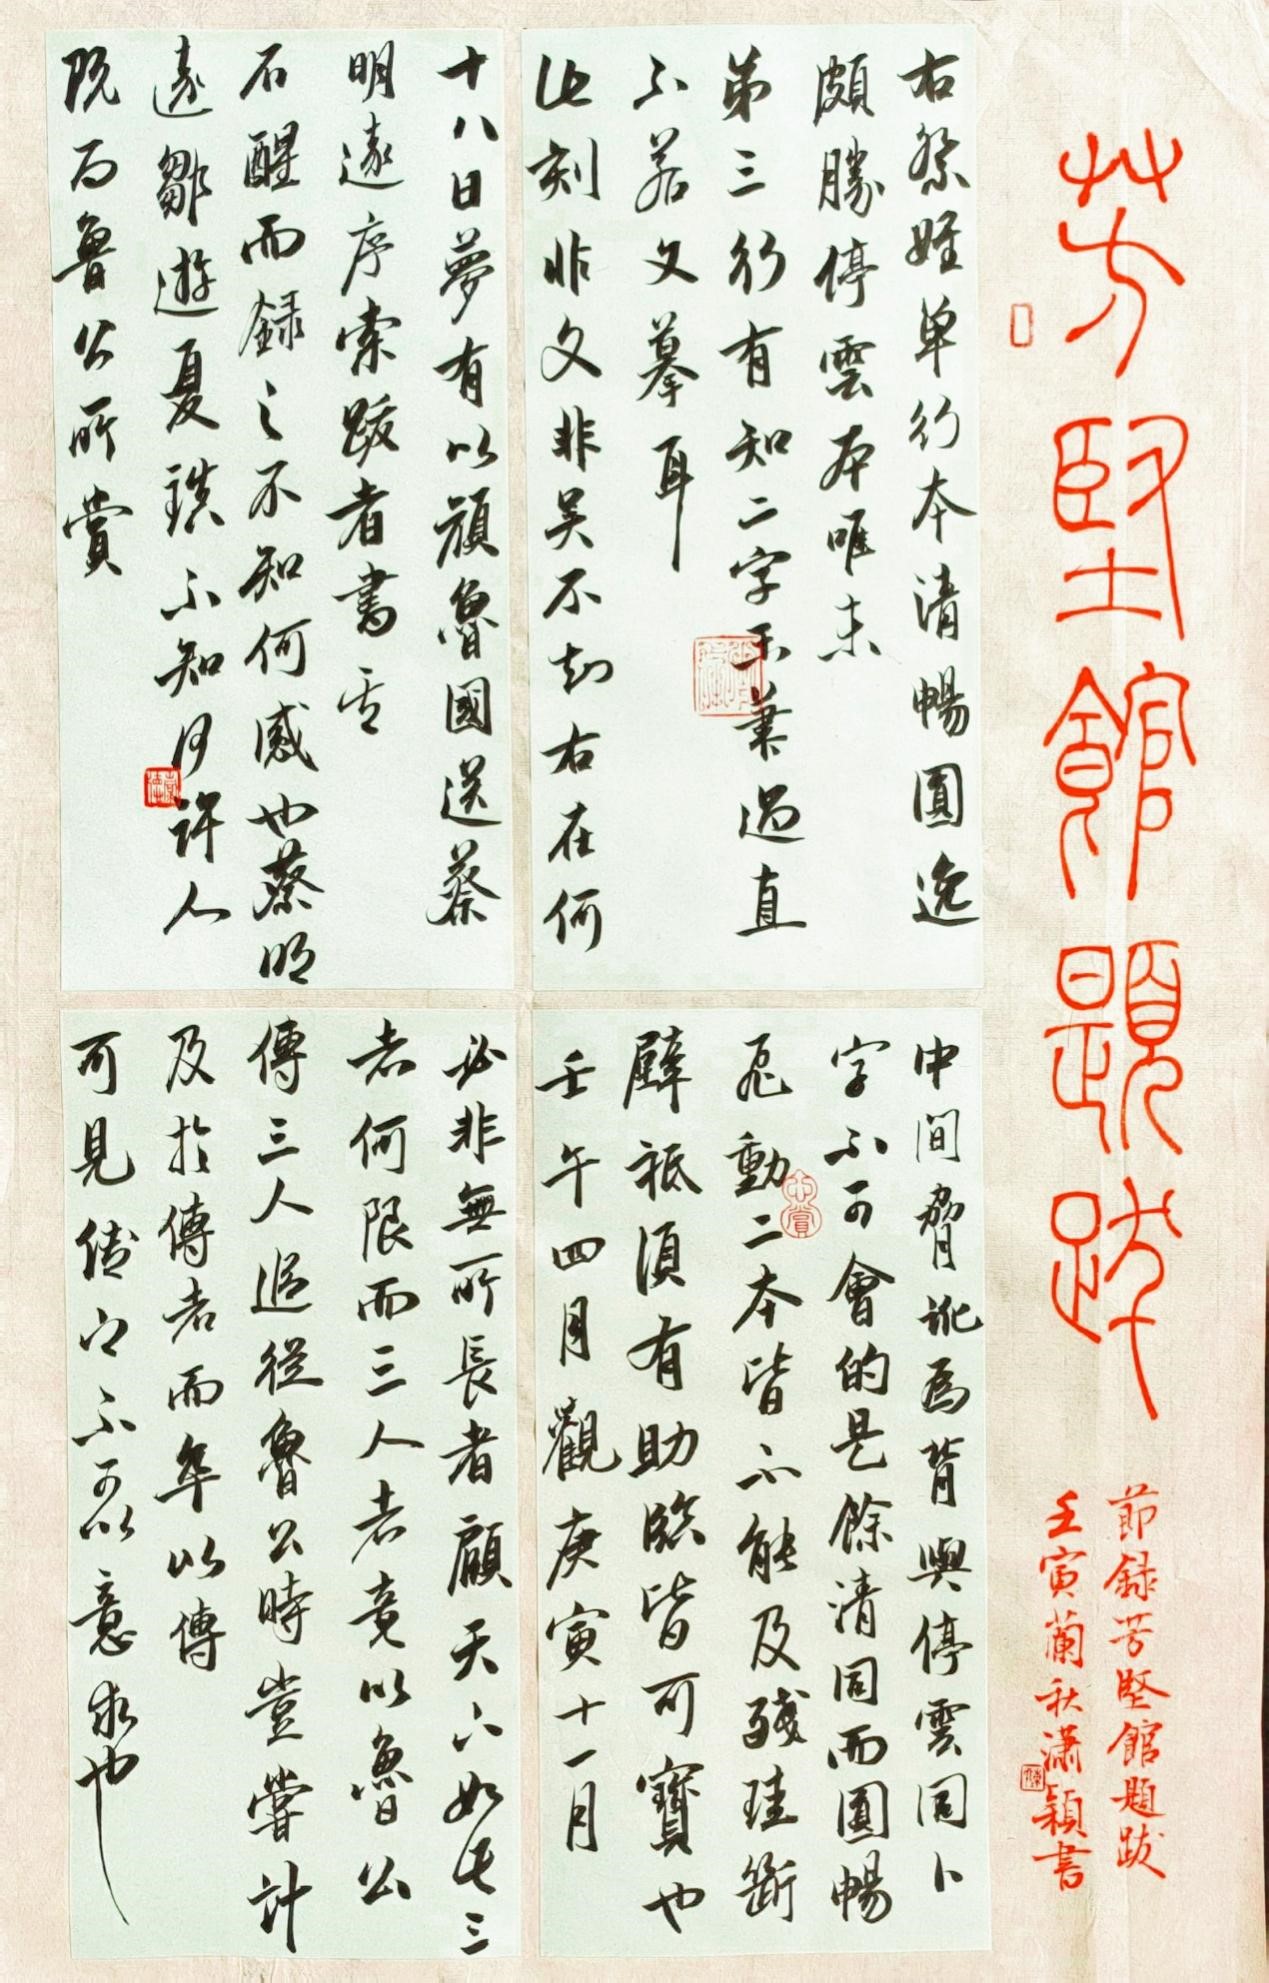 芳堅館題跋
節録芳堅館題跋
壬寅蘭秋瀟穎書
右祭姪單行本清暢圓逸
頗勝停雲本唯末
第三行有知二字不兼過直
不若文摹耳
此刻非文非吴不知右在何
中間脅訛爲背與停雲同卜
字不可會的是餘清同而圓暢
飛動二本皆不能及殘珪斷
璧祗須有助臨皆可寶也
壬午四月觀庚寅十一月
十八日夢有以顔魯國送蔡
明遠序索跋者書云
石醒而録之不知何感也蔡明
遠鄒遊夏鎮不知何許人
既爲魯公所賞
必非無所長者顧天下如此三
者何限而三人者竟以魯公
傳三人追從魯公時豈嘗計
及於傳者而卒以傳
可見传之不可以意求也